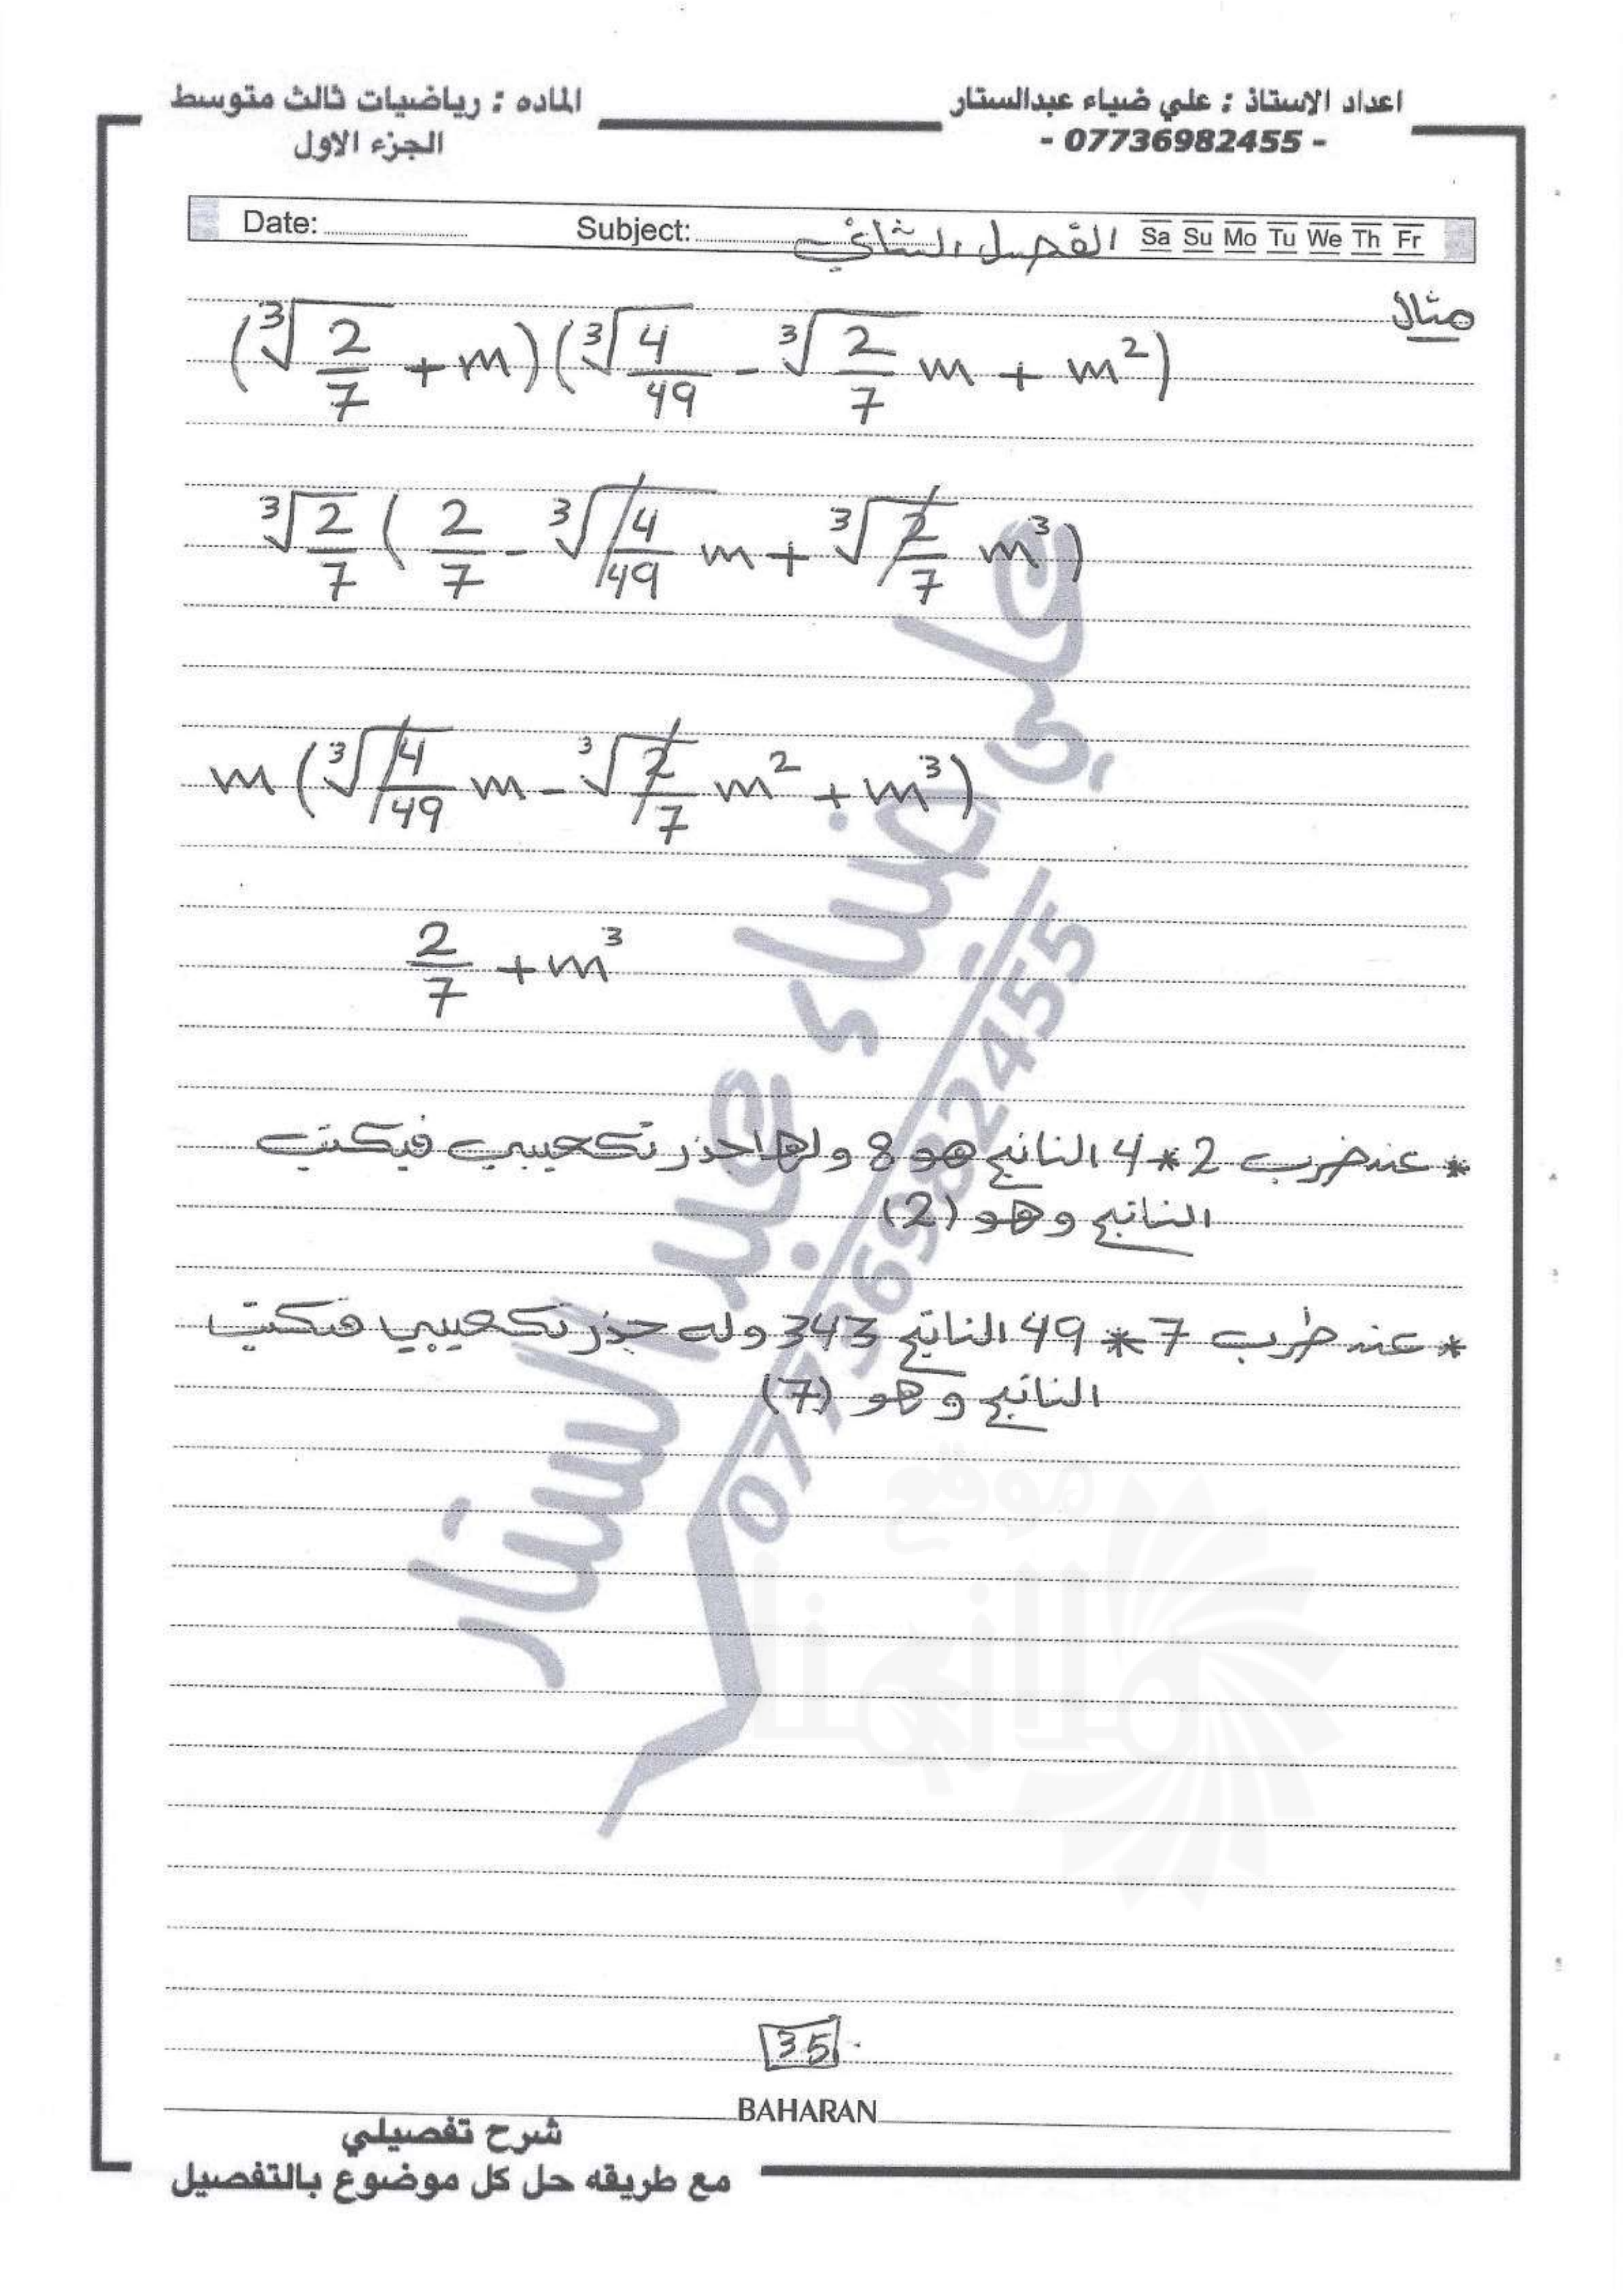 اعداد الاستاذ : علي ضياء عبدالستار
- 07736982455 -
الماده : رياضيات ثالث متوسط
الجزء الاول
Date: Subject: الفصل الثاني Sa Su Mo Tu We Th Fr
مثال
(∛(2/7) + m)(∛(4/49) - ∛(2/7) m + m²)
∛(2/7) ( 2/7 - ∛(4/49) m + ∛(2/7) m³)
m (∛(4/49) m - ∛(2/7) m² + m³)
2/7 + m³
* عند ضرب 2 * 4 الناتج هو 8 ولها جذر تكعيبي فيكتب
الناتج وهو (2)
* عند ظرب 7 * 49 الناتج 343 وله جذر تكعيبي فيكتب
الناتج وهو (7)
علي ضياء عبد الستار
07736982455
موقع
ملازمنا
35
BAHARAN
شرح تفصيلي
مع طريقه حل كل موضوع بالتفصيل